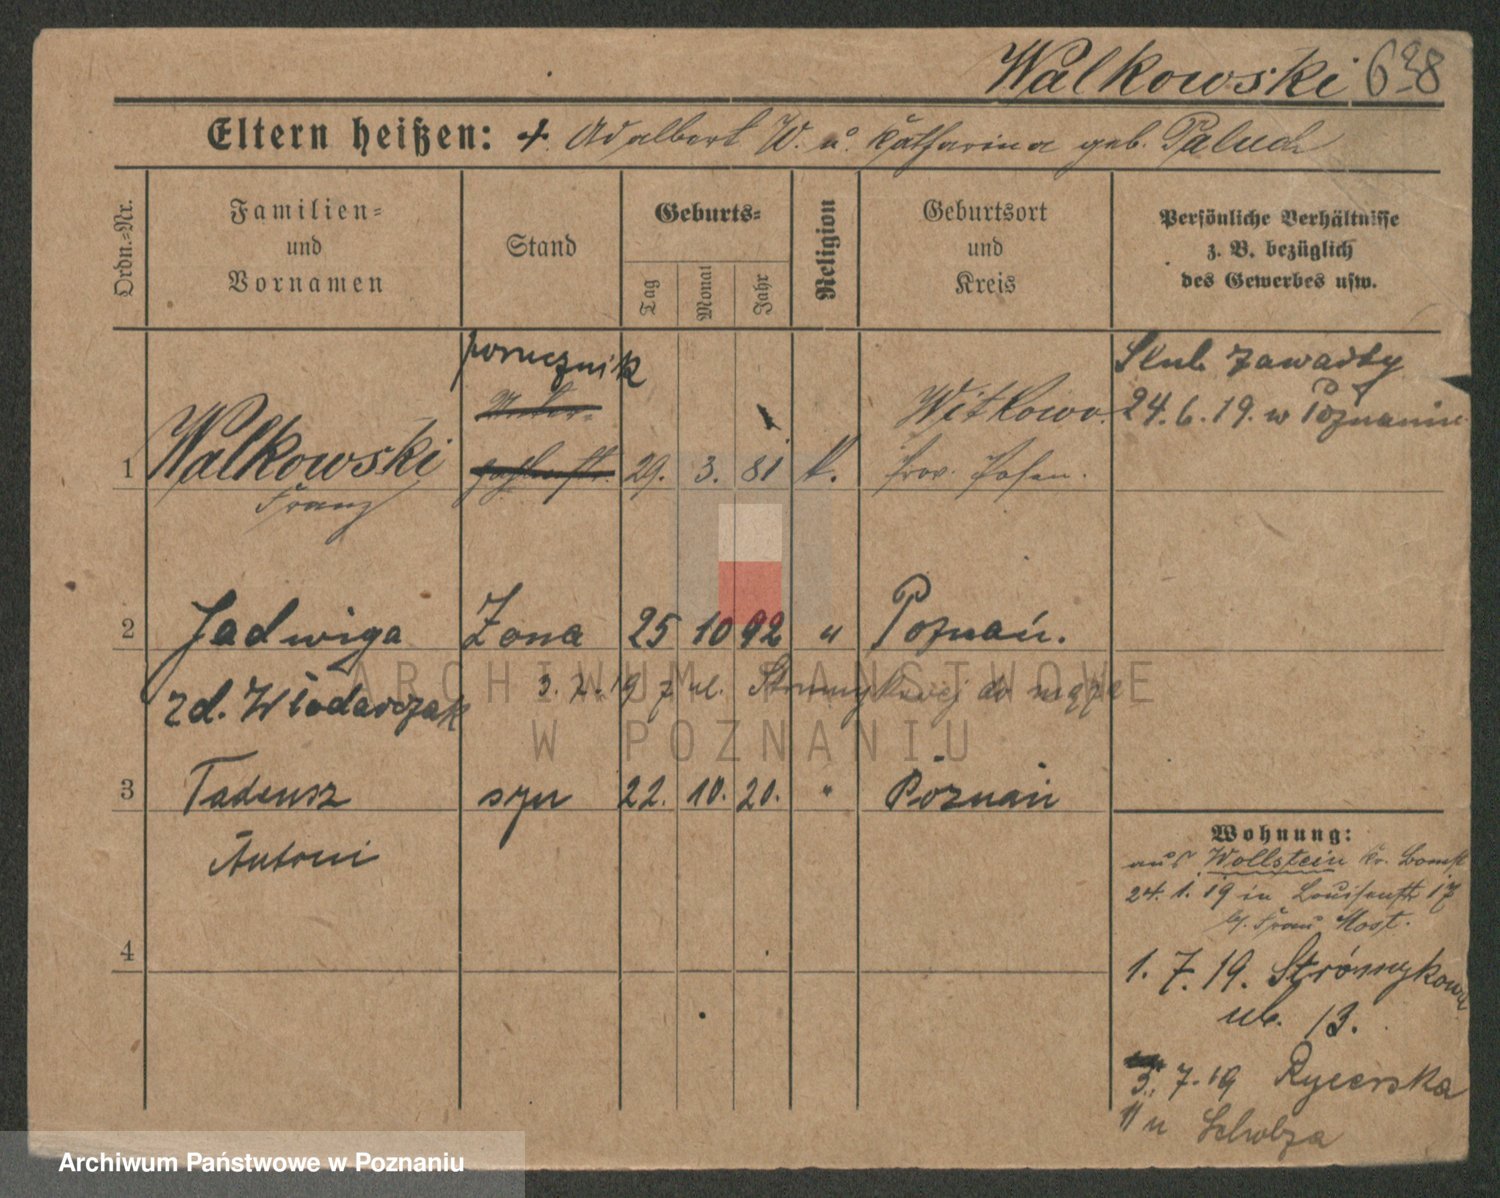 Walkowski 638
Eltern heißen: † Adalbert W. u. Katharina geb. Paluch
Ordn.-Nr.
Familien=
und
Vornamen
Stand
Geburts=
Tag
Monat
Jahr
Religion
Geburtsort
und
Kreis
Persönliche Verhältnisse
z. B. bezüglich
des Gewerbes usw.
porucznik
Ślub zawarty
24.6.19. w Poznaniu
1 Walkowski 29. 3. 81 k. Witkowo
Franz Prov. Posen.
2 Jadwiga Żona 25 10 92 " Poznań.
zd. Włodarczak 3. 7. 19 z ul. Strumykowej do męża
3 Tadeusz syn 22. 10. 20. " Poznań
Antoni
4
Wohnung:
aus Wollstein Kr. Bomst
24. 1. 19 in Louisenstr 17
b/. Frau Most.
1. 7. 19. Strómykowa
ul. 13.
3. 7. 19 Rycerska
11 u
ARCHIWUM PAŃSTWOWE
W POZNANIU
Archiwum Państwowe w Poznaniu